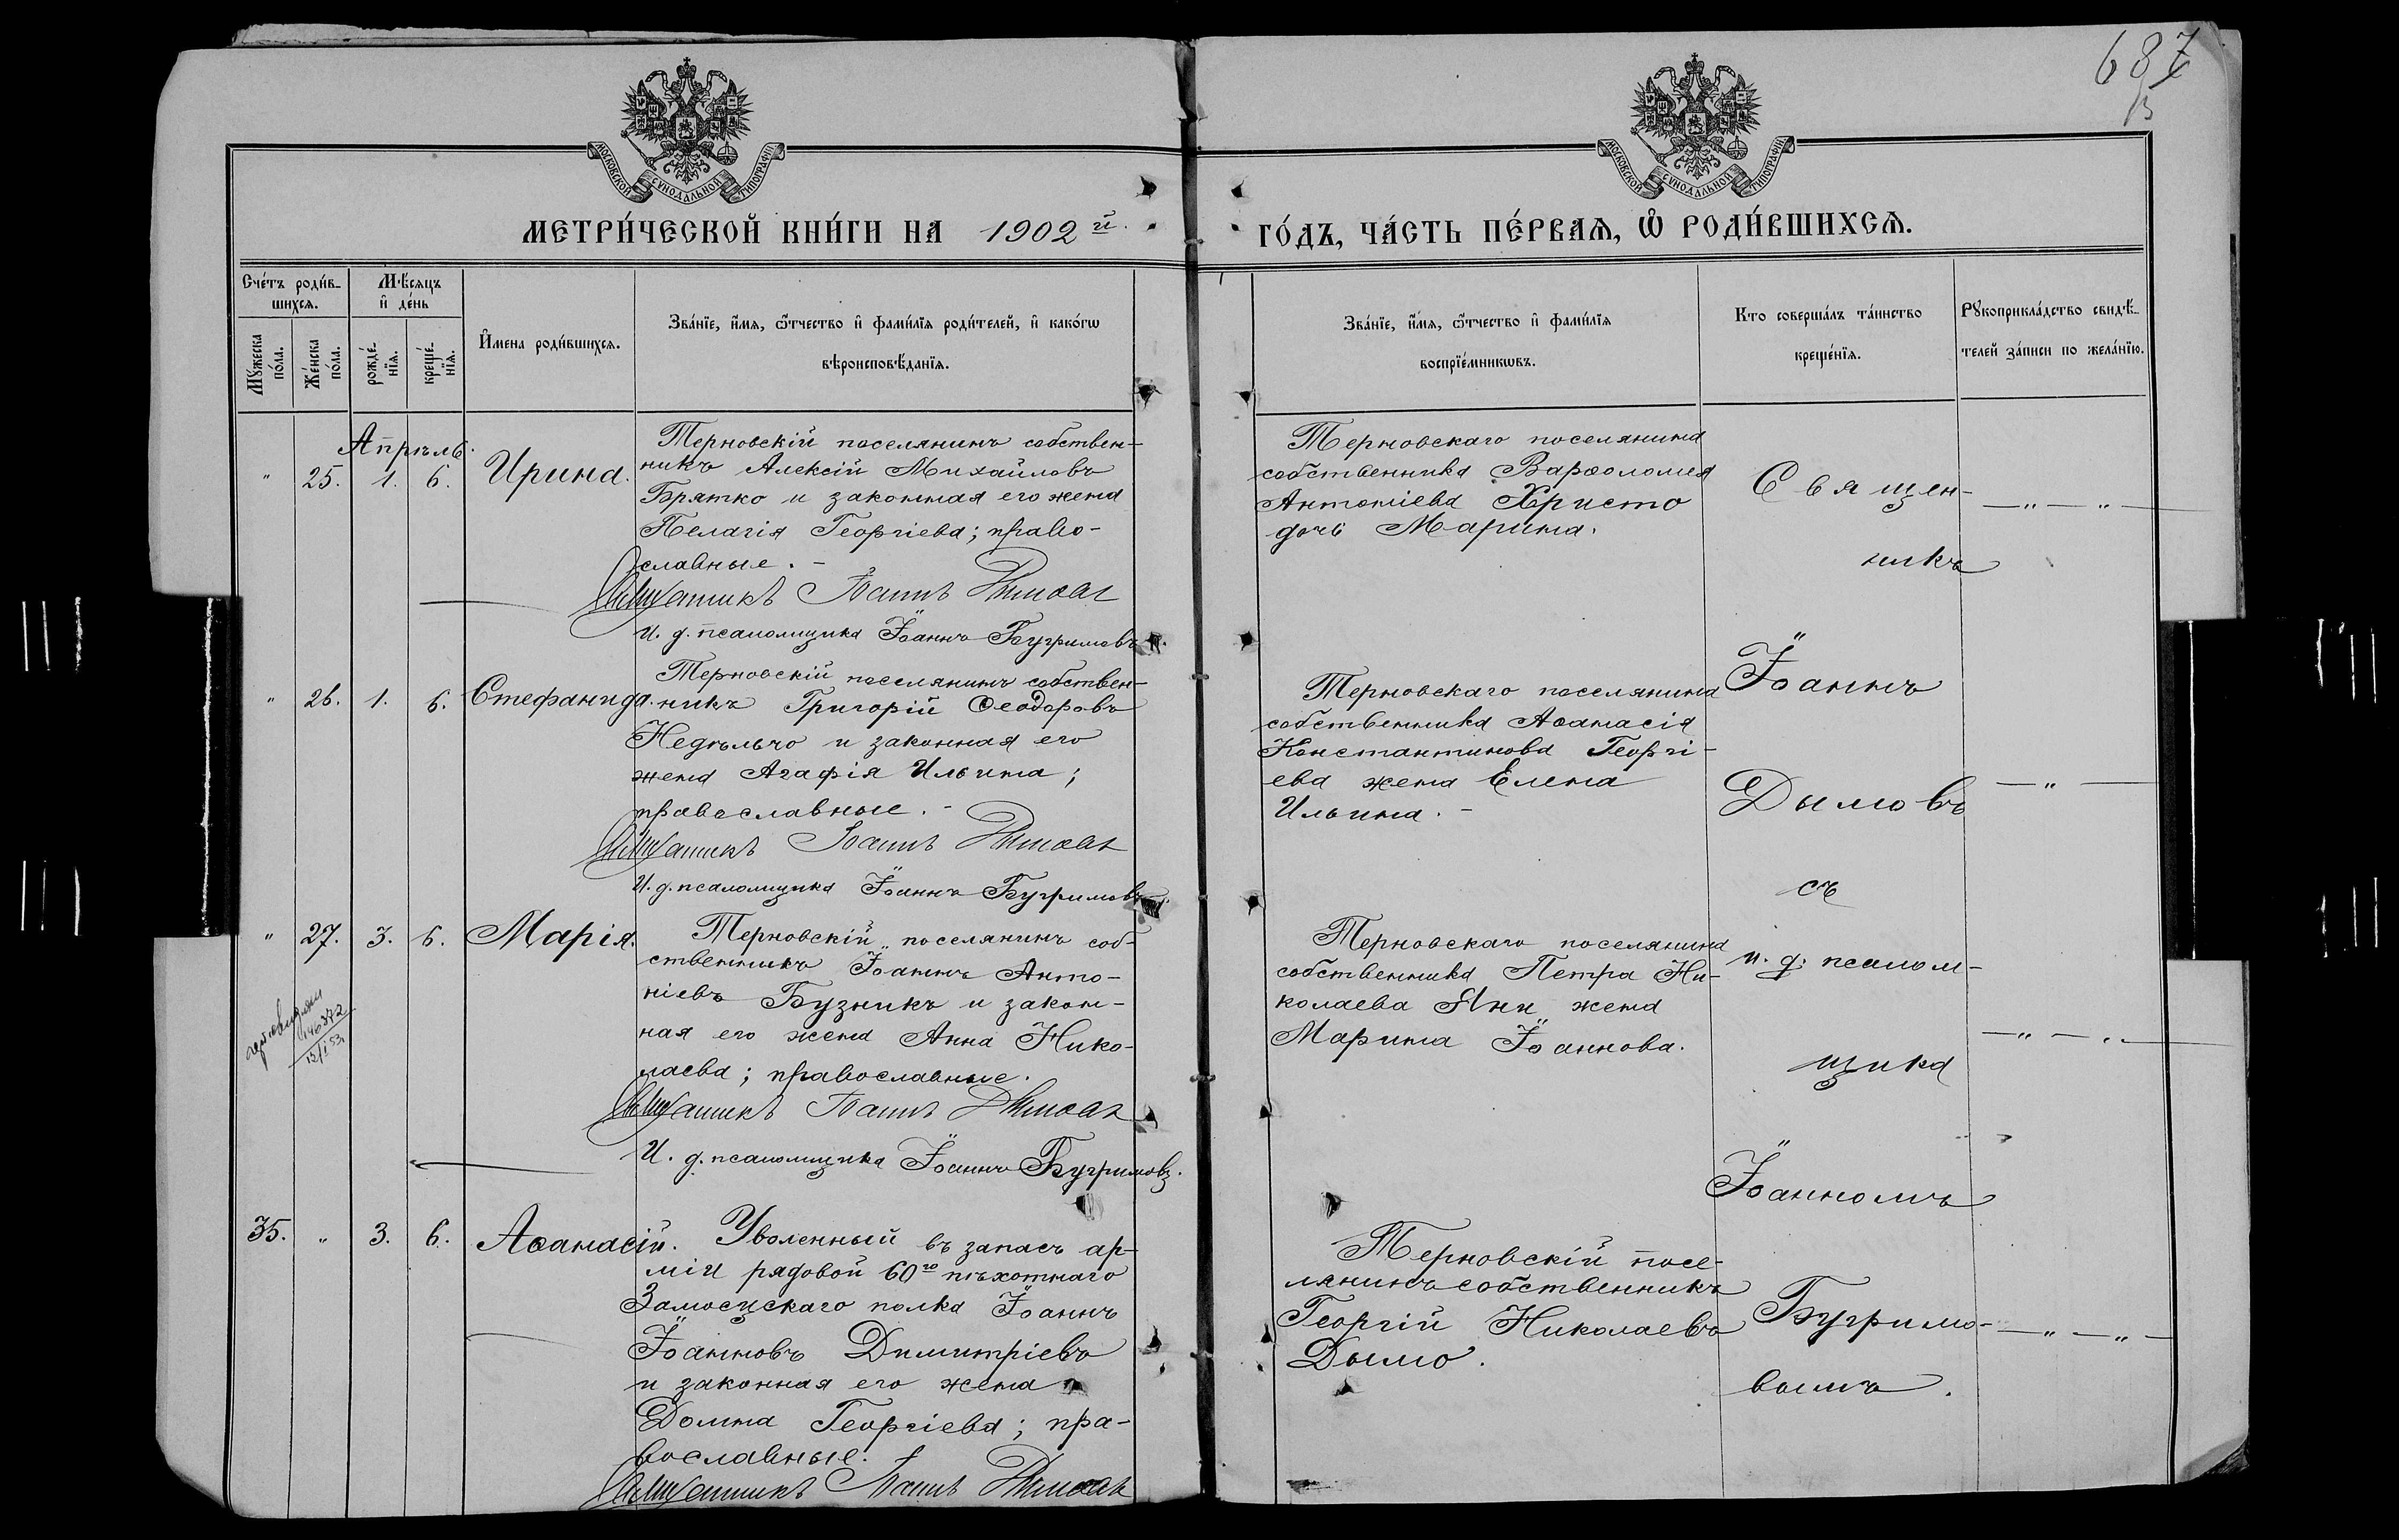 687
МОСКОВСКОЙ СѴНОДАЛЬНОЙ ТИПОГРАФІИ
МОСКОВСКОЙ СѴНОДАЛЬНОЙ ТИПОГРАФІИ
МЕТРИ́ЧЕСКОЙ КНИ́ГИ НА 1902 й.
ГО́ДЪ, ЧА́СТЬ ПЕ́РВАѦ, Ѽ РОДИ́ВШИХСѦ.
Сче́тъ роди́в-
шихсѧ.
Мꙋ́жеска по́ла.
Же́нска по́ла.
Мѣ́сѧцъ
и҆ де́нь
рожде́-
нїѧ.
креще́-
нїѧ.
И҆мена роди́вшихсѧ.
Зва́нїе, и҆́мѧ, ѻ҆́тчество и҆ фами́лїѧ роди́телей, и҆ како́гѡ
вѣроисповѣ́данїѧ.
Зва́нїе, и҆́мѧ, ѻ҆́тчество и҆ фами́лїѧ
воспрїе́мникѡвъ.
Кто соверша́лъ та́инство
креще́нїѧ.
Рꙋкоприкла́дство свидѣ́-
телей за́писи по жела́нїю.
Апрѣль.
" 25. 1. 6. Ирина.
Терновскій поселянинъ собствен-
никъ Алексій Михайловъ
Брятко и законная его жена
Пелагія Георгіева; право-
славные. -
Священникъ Іоаннъ Дымовъ
И. д. псаломщика Іоаннъ Бугримовъ.
Терновскаго поселянина
собственника Варѳоломея
Антоніева Христо
дочь Марина.
" 26. 1. 6. Стефанида.
Терновскій поселянинъ собствен-
никъ Григорій Ѳеодоровъ
Недѣльчо и законная его
жена Агафія Ильина;
православные. -
Священникъ Іоаннъ Дымовъ
И. д. псаломщика Іоаннъ Бугримовъ.
Терновскаго поселянина
собственника Аѳанасія
Константинова Георгі-
ева жена Елена
Ильина. -
" 27. 3. 6. Марія.
140372
Терновскій поселянинъ соб-
ственникъ Іоаннъ Анто-
ніевъ Бузникъ и закон-
ная его жена Анна Нико-
лаева; православные.
Священникъ Іоаннъ Дымовъ
И. д. псаломщика Іоаннъ Бугримовъ.
Терновскаго поселянина
собственника Петра Ни-
колаева Яни жена
Марина Іоаннова.
35. " 3. 6. Аѳанасій.
Уволенный въ запасъ ар-
міи рядовой 60го пѣхотнаго
Замосцскаго полка Іоаннъ
Іоанновъ Димитріевъ
и законная его жена
Домна Георгіева; пра-
вославные.
Священникъ Іоаннъ Дымовъ
Терновскій посе-
лянинъ собственникъ
Георгій Николаевъ
Дымо.
Священ-
никъ
Іоаннъ
Дымовъ
съ
и. д. псалом-
щика
Іоанномъ
Бугримо-
вымъ.
— " — " —
— " —
— " — " —
— " — " —